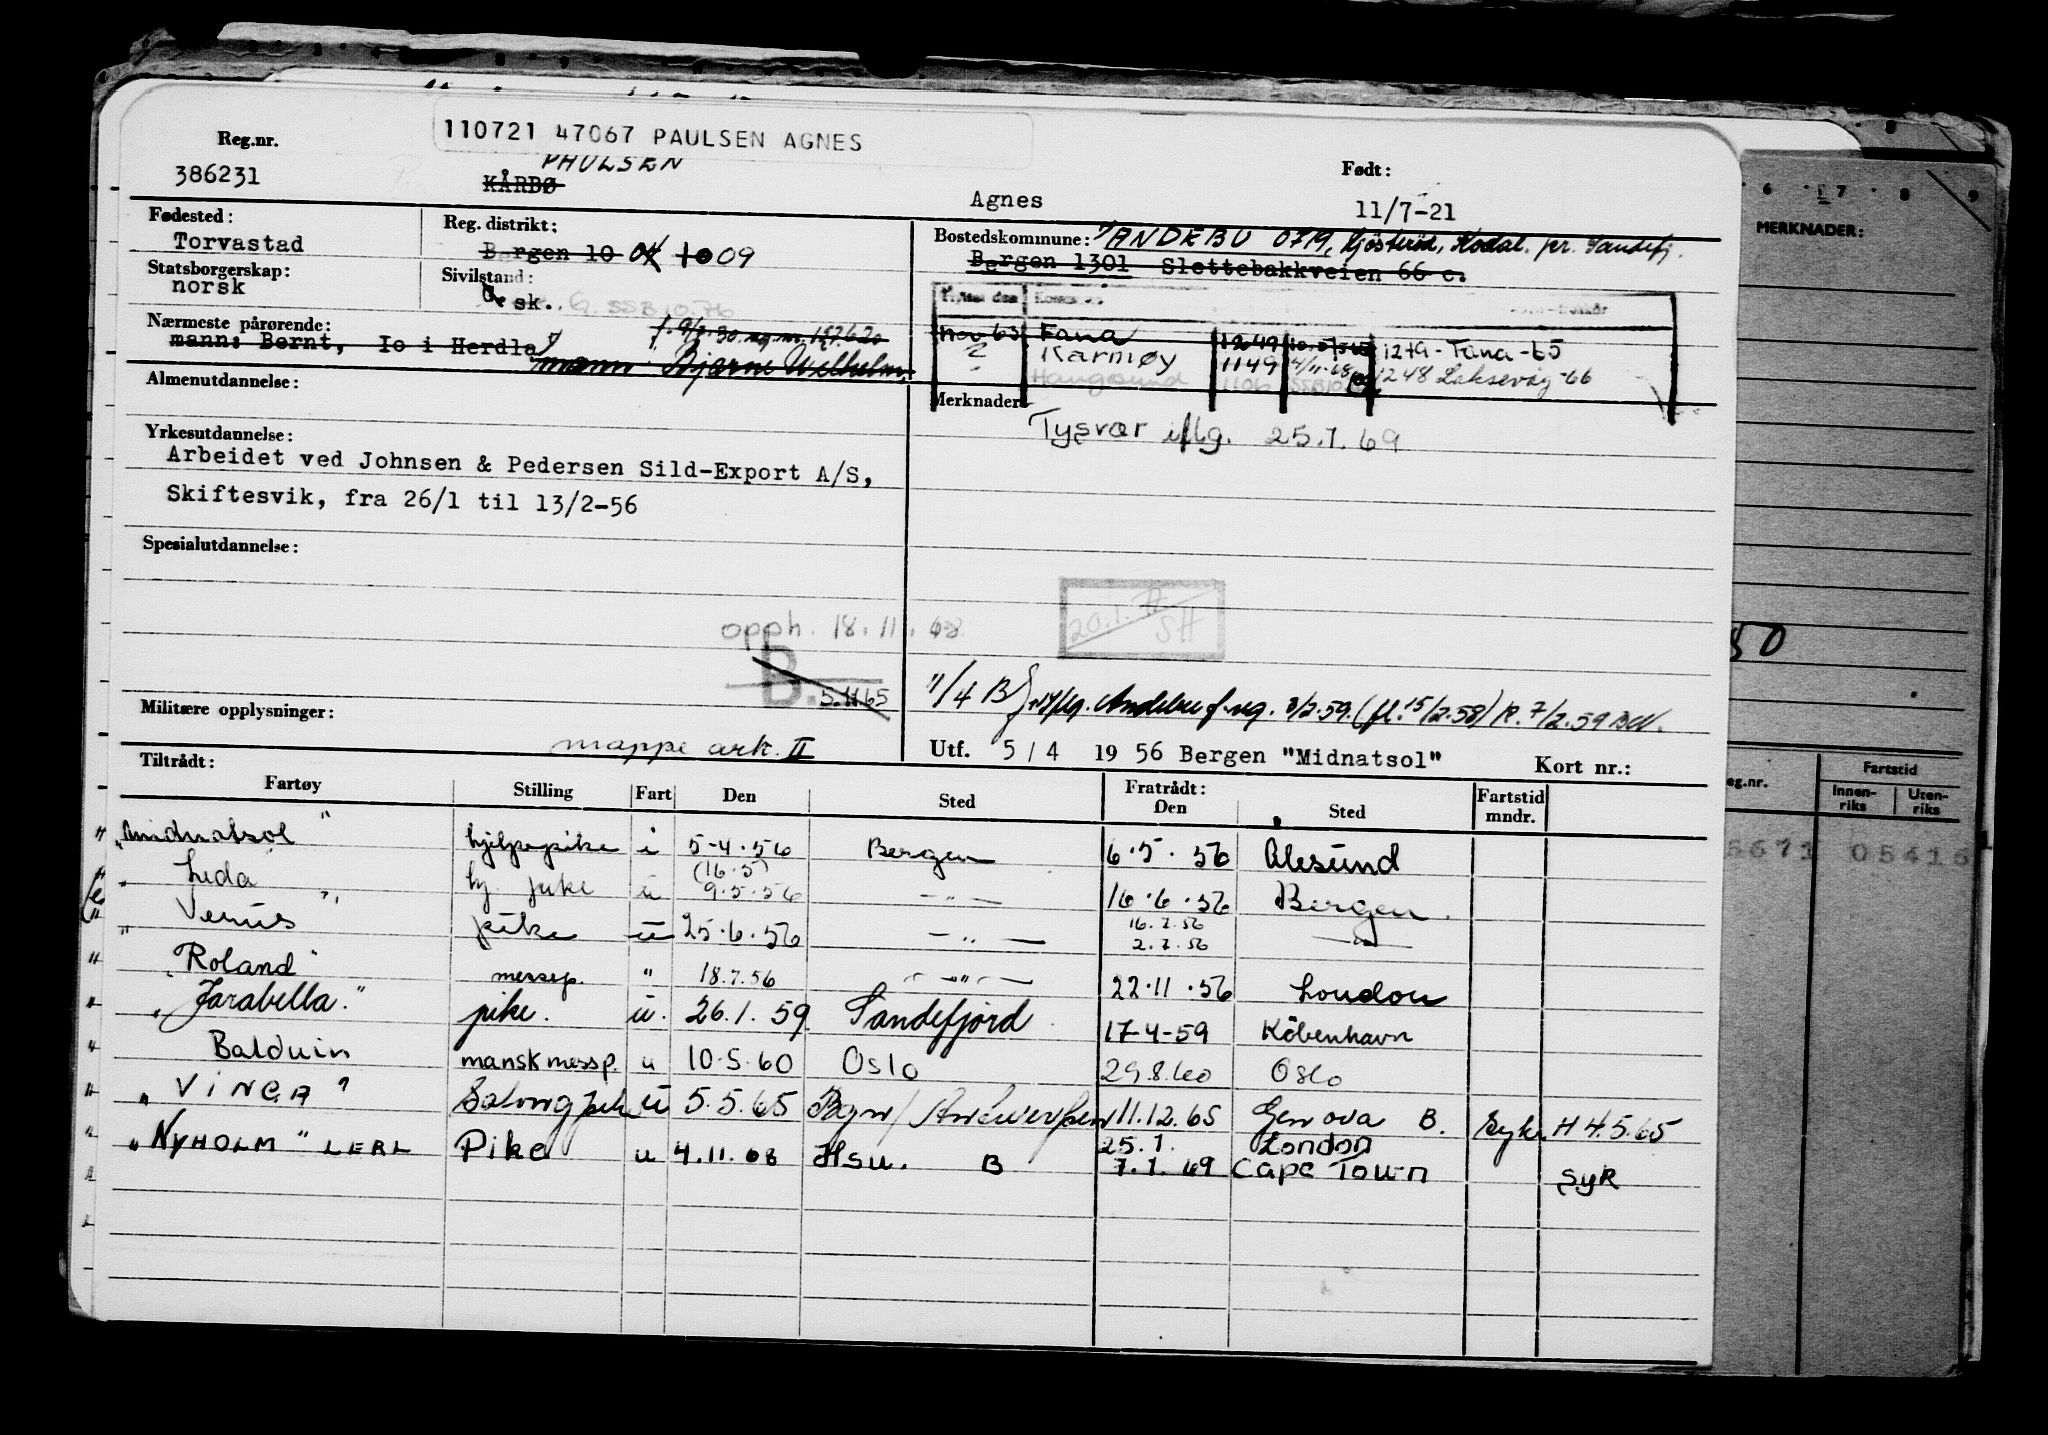 110721 47067 PAULSEN AGNES
Reg.nr.
386231
PAULSEN
KÅRBØ
Agnes
Født:
11/7-21
Fødested:
Torvastad
Reg. distrikt:
Bergen 10 04 10 09
Bostedskommune: ANDEBU 0719, Kodal. pr. Sandefj.
Bergen 1301 Slettebakkveien 66 c.
Statsborgerskap:
norsk
Sivilstand:
sk. G. SSB 10.76
Nærmeste pårørende:
mann: Bernt, Io i Herdla
mann Bjarne Wilhelm
Nov 65 Fana 1249 1249 - Fana -65
Karmøy 1149 4/11-68 1248 Laksevåg -66
Haugesund 1106
Almenutdannelse:
Merknader
Tysvær iflg. 25.1.69
Yrkesutdannelse:
Arbeidet ved Johnsen & Pedersen Sild-Export A/S,
Skiftesvik, fra 26/1 til 13/2-56
Spesialutdannelse:
opph. 18.11.68
B.
5.11.65
20.1.
SH
Militære opplysninger:
mappe ark. II
11/4 B Andebu f.reg. 3/2.59. (fl. 15/2.58) R. 7/2.59 BW.
Utf. 5/4 1956 Bergen "Midnatsol" Kort nr.:
Tiltrådt:
Fartøy Stilling Fart Den Sted Fratrådt: Den Sted Fartstid mndr.
"Midnatsol" hjelpepike i 5-4.56 Bergen 6.5.56 Ålesund
" Leda " hj. pike u (16.5) 9.5.56 - " - 16.6.56 Bergen
" Venus pike u 25.6.56 - " - 16.7.56 2.7.56 - " -
"Roland" messep. " 18.7.56 - " - 22.11.56 London
"Jarabella." pike. u. 26.1.59. Sandefjord 17-4-59 København
Balduin manskmessp. u 10.5.60 Oslo 29.8.60 Oslo
"VINGA" Salongpike u 5.5.65 Bgn/Antwerpen 11.12.65 Genova B. Syk. H 4.5.65
"NYHOLM" LERL Pike u 4.11.68 Hsu. B 25.1. London
7.1.69 Cape Town SyK
6 7 8 9
MERKNADER:
50
eg.nr.
Fartstid
Innen-
riks
Uten-
riks
5671 05416